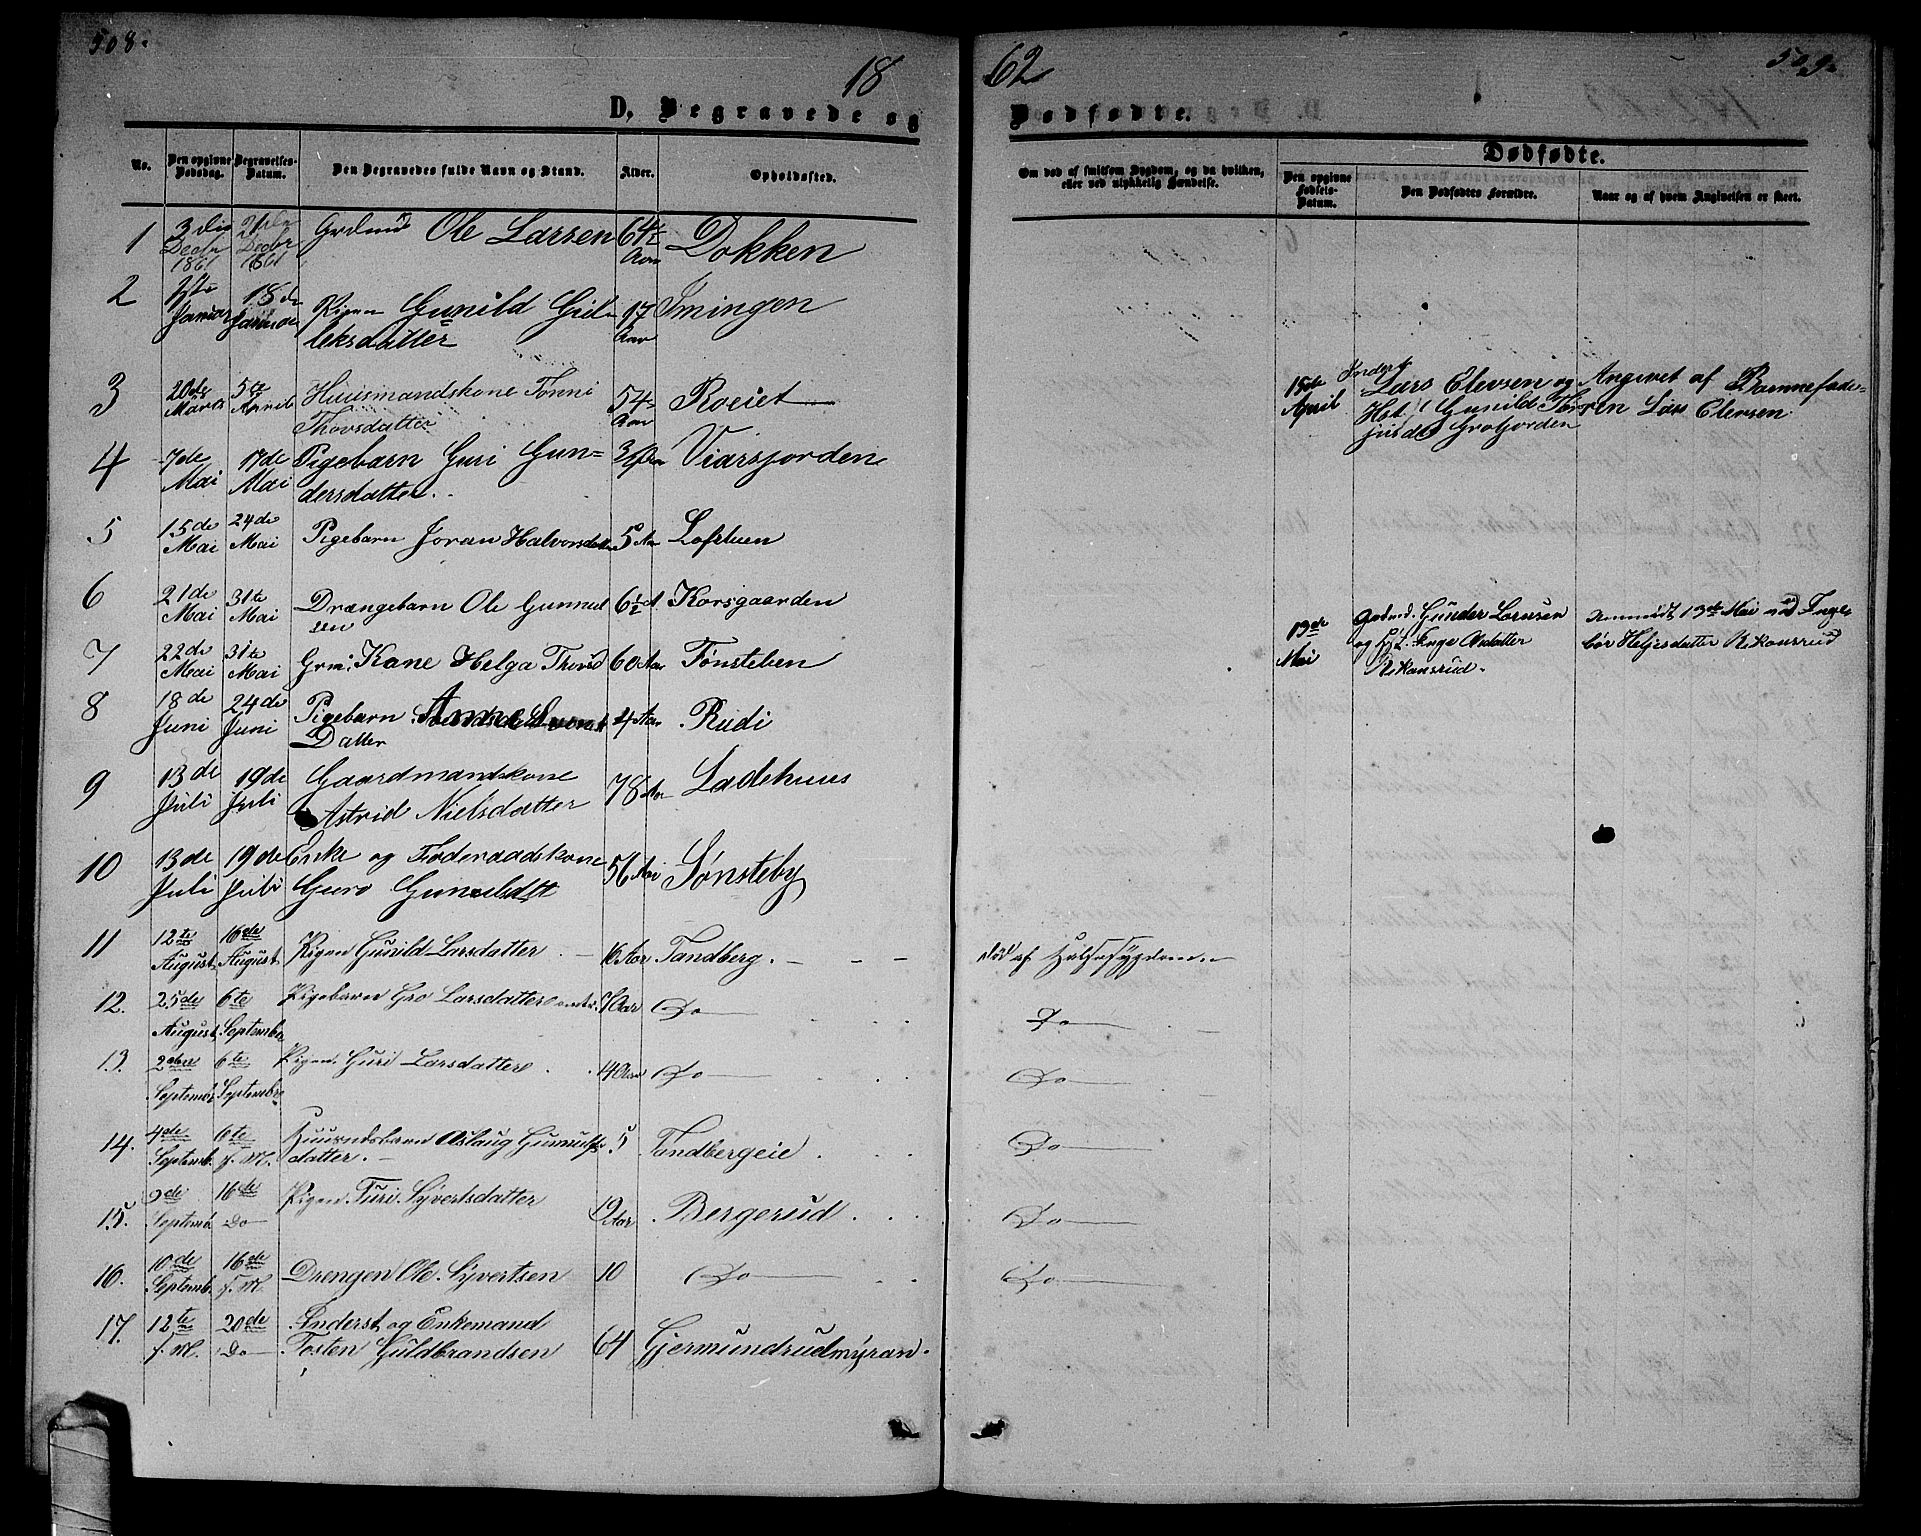 508.
18
D. Begravede og
No.
Den opgivne Dødsdag.
Begravelses-Datum.
Den Begravedes fulde Navn og Stand.
Alder.
Opholdssted.
1 3die Decbr 1861 Decbr 1861 Grdmd Ole Larsen 64½ Aar Dokken
2 Januar 18de Januar Pigen Gunild Gul-
leksdatter 17 Aar Imingen
3 20de Marts 5te April Huusmandskone Tønni
Thovsdatter 54 Aar Roeiet
4 7de Mai 17de Mai Pigebarn Guri Gun=
dersdatter. 3 Aar Viarsjorden
5 15de Mai 24de Mai Pigebarn Joran Halvorsdatter 5 Aar Loftuen
6 21de Mai 31te Mai Drængebarn Ole Gunnul
sen 6½ A. Korsgaarden
7 22de Mai 31te Mai Grm. Kone Helga Thovsd 60 Aar Tønsteben
8 18de Juni 24de Juni Pigebarn Anne
Datter 4 Aar Rudi
9 13de Juli 19de Juli Gaardmandskone
Astrid Nielsdatter 78 Aar Ladehuus
10 13de Juli 19de Juli Enke og Føderaadskone
Guro Gunulsdtt 56 Aar Sønsteby
11 12te August 16de August Pigen Gunild Larsdatter 16 Aar Tandberg.
12. 25de August 6te September Pigebarn Gro Larsdatter Aar Do
13. 2den Septembr 6te Septembr Pigen Guri Larsdatter 14 Aar Do
14. 4de Septemb. 6te f. M. Aslaug Gunnulfs
datter. 5 Tandbergeie
15. 9de Septemb. 16de Do Pigen Turi Syvertsdatter Aar Bergerud
16. 10de Septemb. 16de f. M. Drengen Ole Syvertsen 10 Do
17. 12te f. M. 20de Do Inderst og Enkemand
Tosten Guldbrandsen 64 Gjermundrudmyran.
62
509.
Dødfødte.
Om død af smitsom Sygdom, og da hvilken,
eller ved ulykkelig Hændelse.
Dødfødte.
Den opgivne Fødsels-Datum.
Den Dødfødtes Forældre.
Naar og af hvem Angivelsen er skeet.
15de April Inderst
Lars Elevsen og Angivet af Barnefade=
Hst. Gunild ren Lars Elevsen
Grofjorden
13de Mai Grdmd. Gunder Larusen Anmeldt 13de Mai ved Inge-
og Hst. Inge Asdatter bør Heljesdatter Rekansrud
Rekansrud.
død af Halssygdom
Do
Do
Do
Do
Do